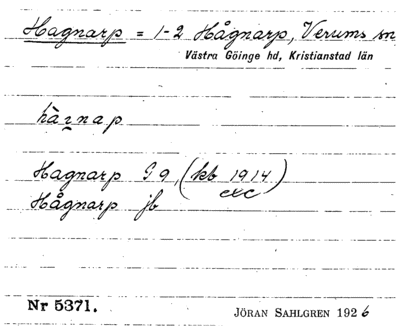 Hagnarp = 1-2 Hågnarp, Verums sn,
Västra Göinge hd, Kristianstad län
Hagnarp G 9, (kb 1914)
exc
Hågnarp jb
Nr 5371.
JÖRAN SAHLGREN 1926